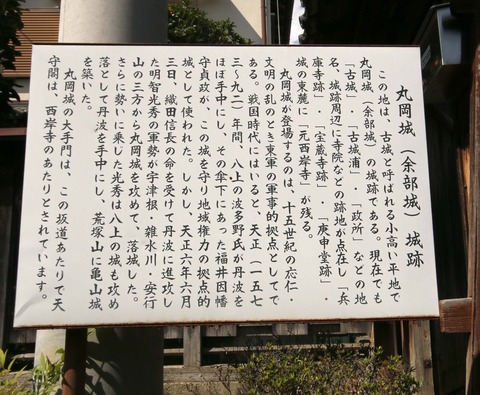 丸岡城(余部城)城跡
この地は、古城と呼ばれる小高い平地で
丸岡城(余部城)の城跡である。現在でも
「古城」・「古城浦」・「政所」などの地
名、城跡周辺に寺院などの跡地が点在し「兵
庫寺跡」・「宝蔵寺跡」・「庚申堂跡」・
城の東麓に「元西岸寺」が残る。
丸岡城が登場するのは、十五世紀の応仁・
文明の乱のとき東軍の軍事的拠点としてで
ある。戦国時代にはいると、天正(一五七
三〜九二)年間、八上の波多野氏が丹波を
ほぼ手中にし、その傘下にあった福井因幡
守貞政が、この城を守り地域権力の拠点的
城として使われた。しかし、天正六年六月
三日、織田信長の命を受けて丹波に進攻し
た明智光秀の軍勢が宇津根・雑水川・安行
山の三方から丸岡城を攻めて、落城した。
さらに勢いに乗した光秀は八上の城も攻め
落として丹波を手中にし、荒塚山に亀山城
を築いた。
丸岡城の大手門は、この坂道あたりで天
守閣は、西岸寺のあたりとされています。